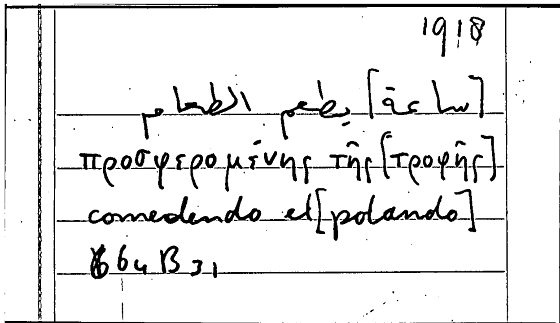 1918
[ساعة] يطعم الطعام
προσφερομένης τῆς [τροφῆς]
comedendo et [potando]
664B31